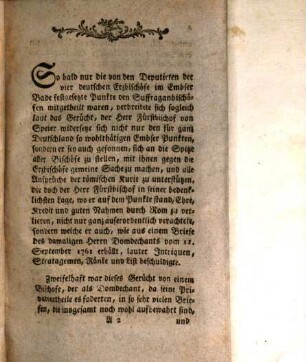 So bald nur die von den Deputirten der
vier deutschen Erzbischöfe im Embser
Bade festgesetzte Punkte den Suffraganbischö-
fen mitgetheilt waren, verbreitete sich sogleich
laut das Gerücht, der Herr Fürstbischof von
Speier widersetze sich nicht nur den für ganz
Deutschland so wohlthätigen Embser Punkten,
sondern er sei auch gesonnen, sich an die Spitze
aller Bischöfe zu stellen, mit ihnen gegen die
Erzbischöfe gemeine Sache zu machen, und alle
Ansprüche der römischen Kurie zu unterstützen,
die doch der Herr Fürstbischof in seiner bedenk-
lichsten Lage, wo er auf dem Punkte stand, Ehre,
Kredit und guten Nahmen durch Rom zu ver-
lieren, nicht nur ganz auserordentlich verachtete,
sondern welche er auch, wie aus einem Briefe
des damaligen Herrn Domdechants vom 11.
September 1761 erhellt, lauter Intriquen,
Stratagemen, Ränke und List beschuldigte.
Zweifelhaft war dieses Gerücht von einem
Bischofe, der als Domdechant, da seine Pri-
vatvortheile es foderten, in so sehr vielen Brie-
fen, die insgesamt noch wohl aufbewahrt sind,
A 2 und